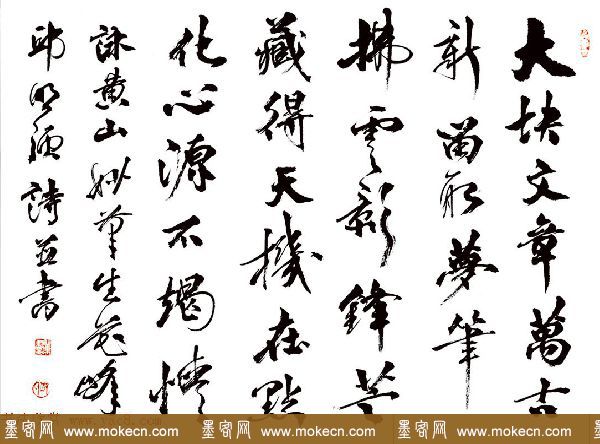 大块文章萬古
新留取夢筆
拂雲影鋒芒
藏得天機在點
化心源不竭情
詠黄山妙筆生花峰
邱明詩並書
墨客网 www.mokecn.com 墨客网 www.mokecn.com 墨客网 www.mokecn.com